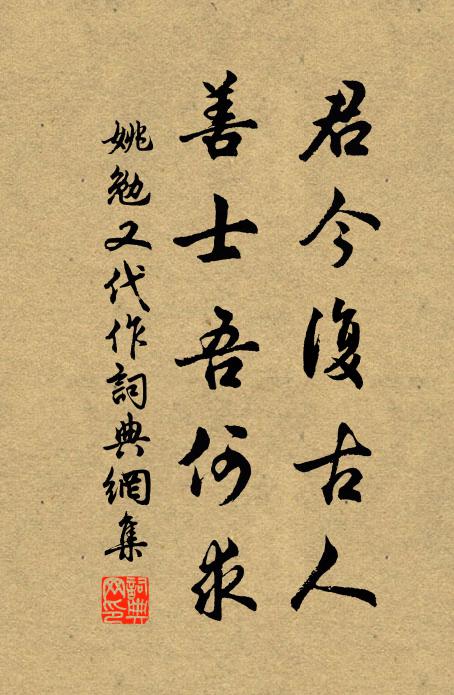 君今復古人
善士吾何求
姚勉又代作詞典網集
詞典網印